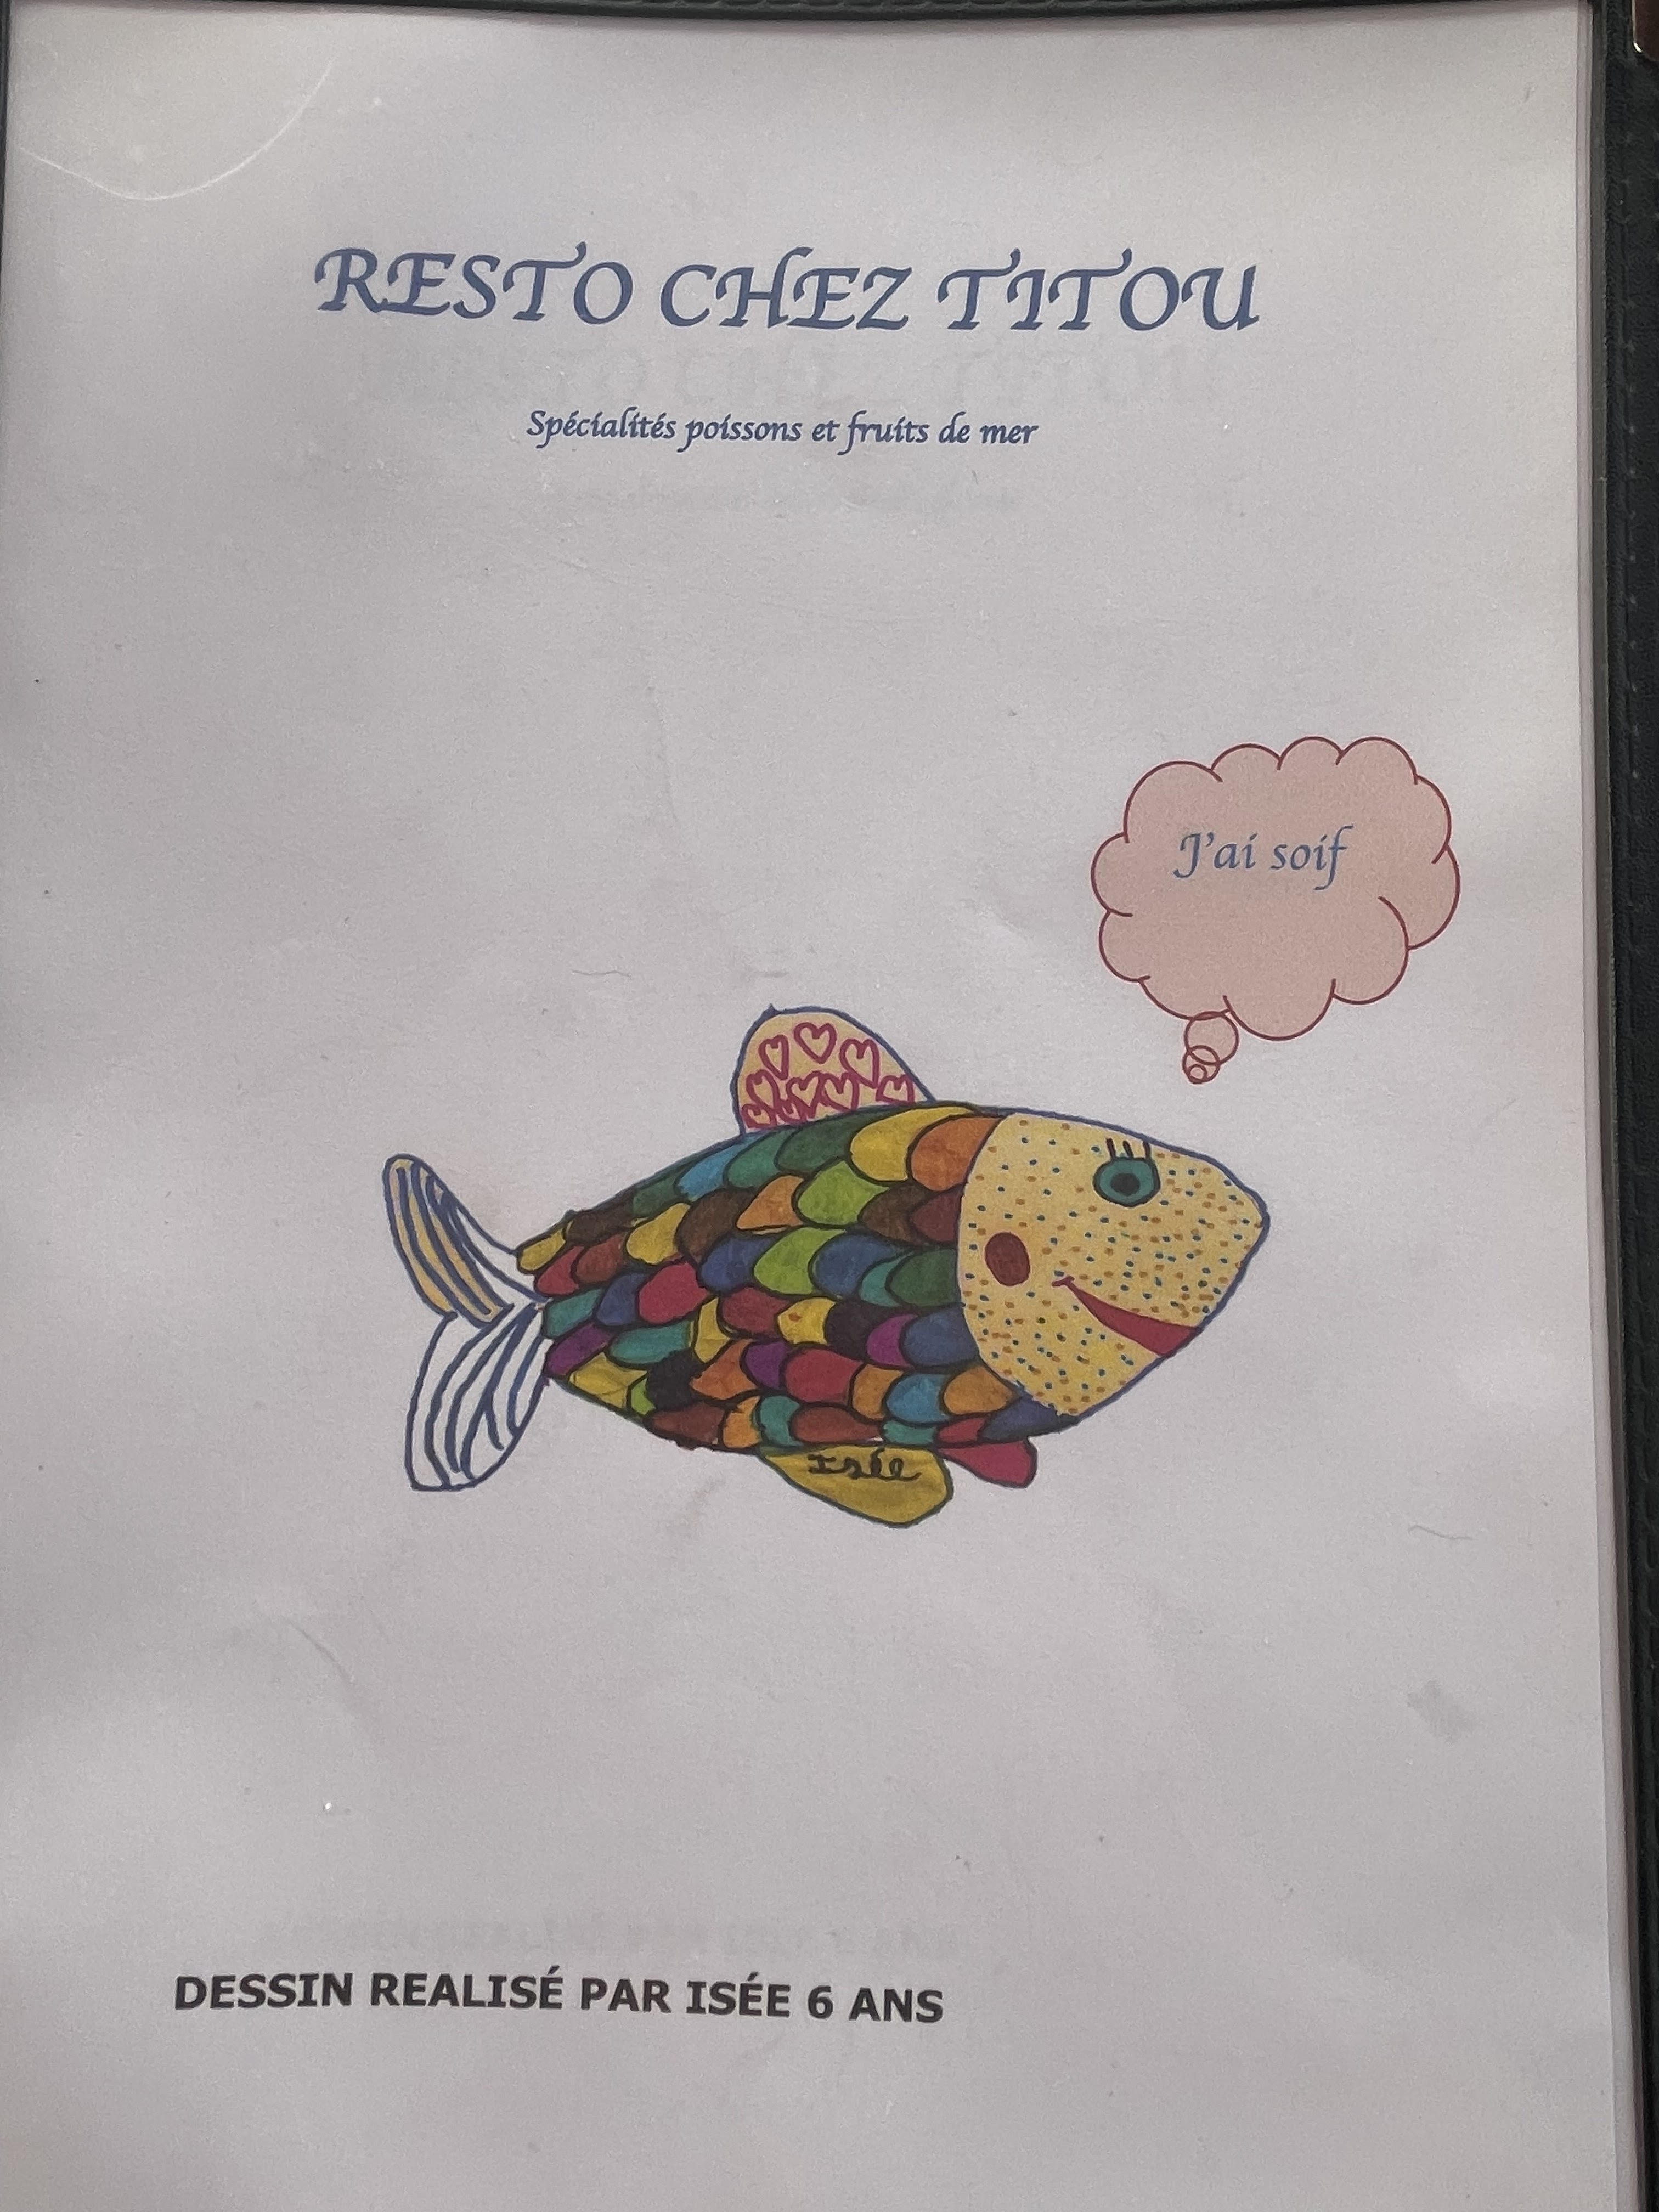 RESTO CHEZ TITOU
Spécialités poissons et fruits de mer
J'ai soif
Isée
DESSIN REALISÉ PAR ISÉE 6 ANS